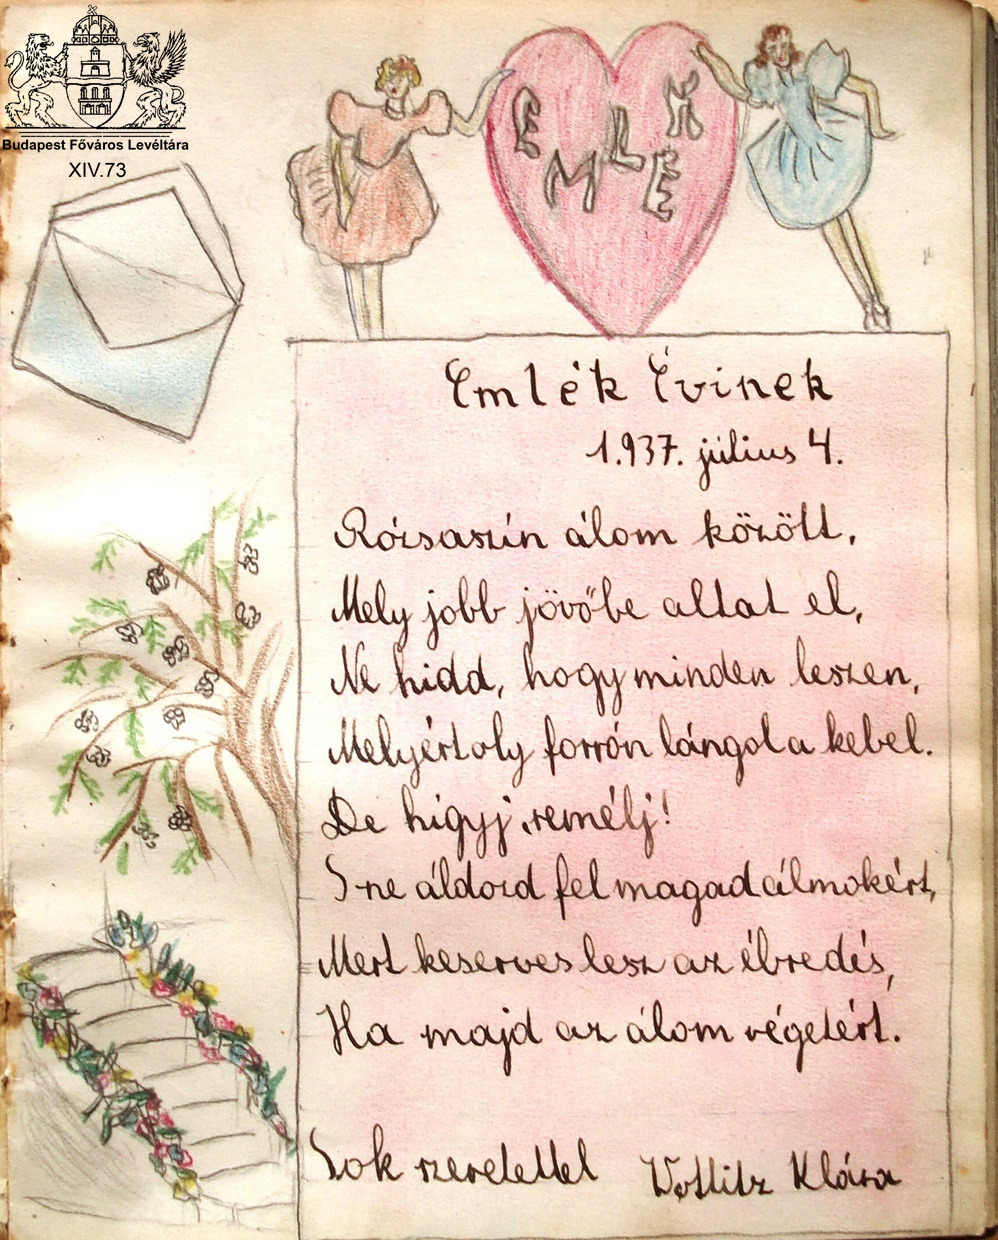 Budapest Főváros Levéltára
XIV.73
EMLÉK
Emlék Évinek
1.937. július 4.
Rózsaszín álom között,
Mely jobb jövőbe altat el,
Ne hidd, hogy minden leszen,
Melyért oly forrón lángol a kebel.
De higyj, remélj!
S-ne áldozd fel magad álmokért,
Mert keserves lesz az ébredés,
Ha majd az álom végetért.
Sok szeretettel Klára